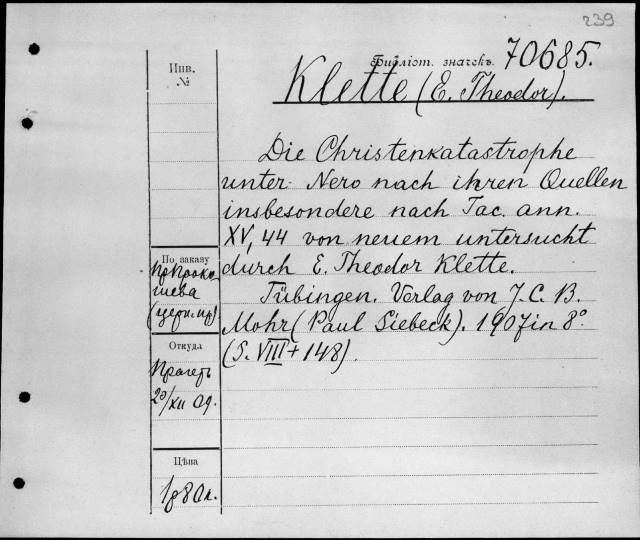 239
Библіот. значекъ 70685.
Klette (E. Theodor).
Инв.
№
Die Christenkatastrophe
unter Nero nach ihren Quellen
insbesondere nach Tac. ann.
XV, 44 von neuem untersucht
durch E. Theodor Klette.
Tübingen. Verlag von J. C. B.
Mohr (Paul Siebeck). 1907 in 8°
(S. VIII + 148).
По заказу
пр Проко-
шева
(церк. пр)
Откуда
20/XII 09.
Цѣна
1р 80к.